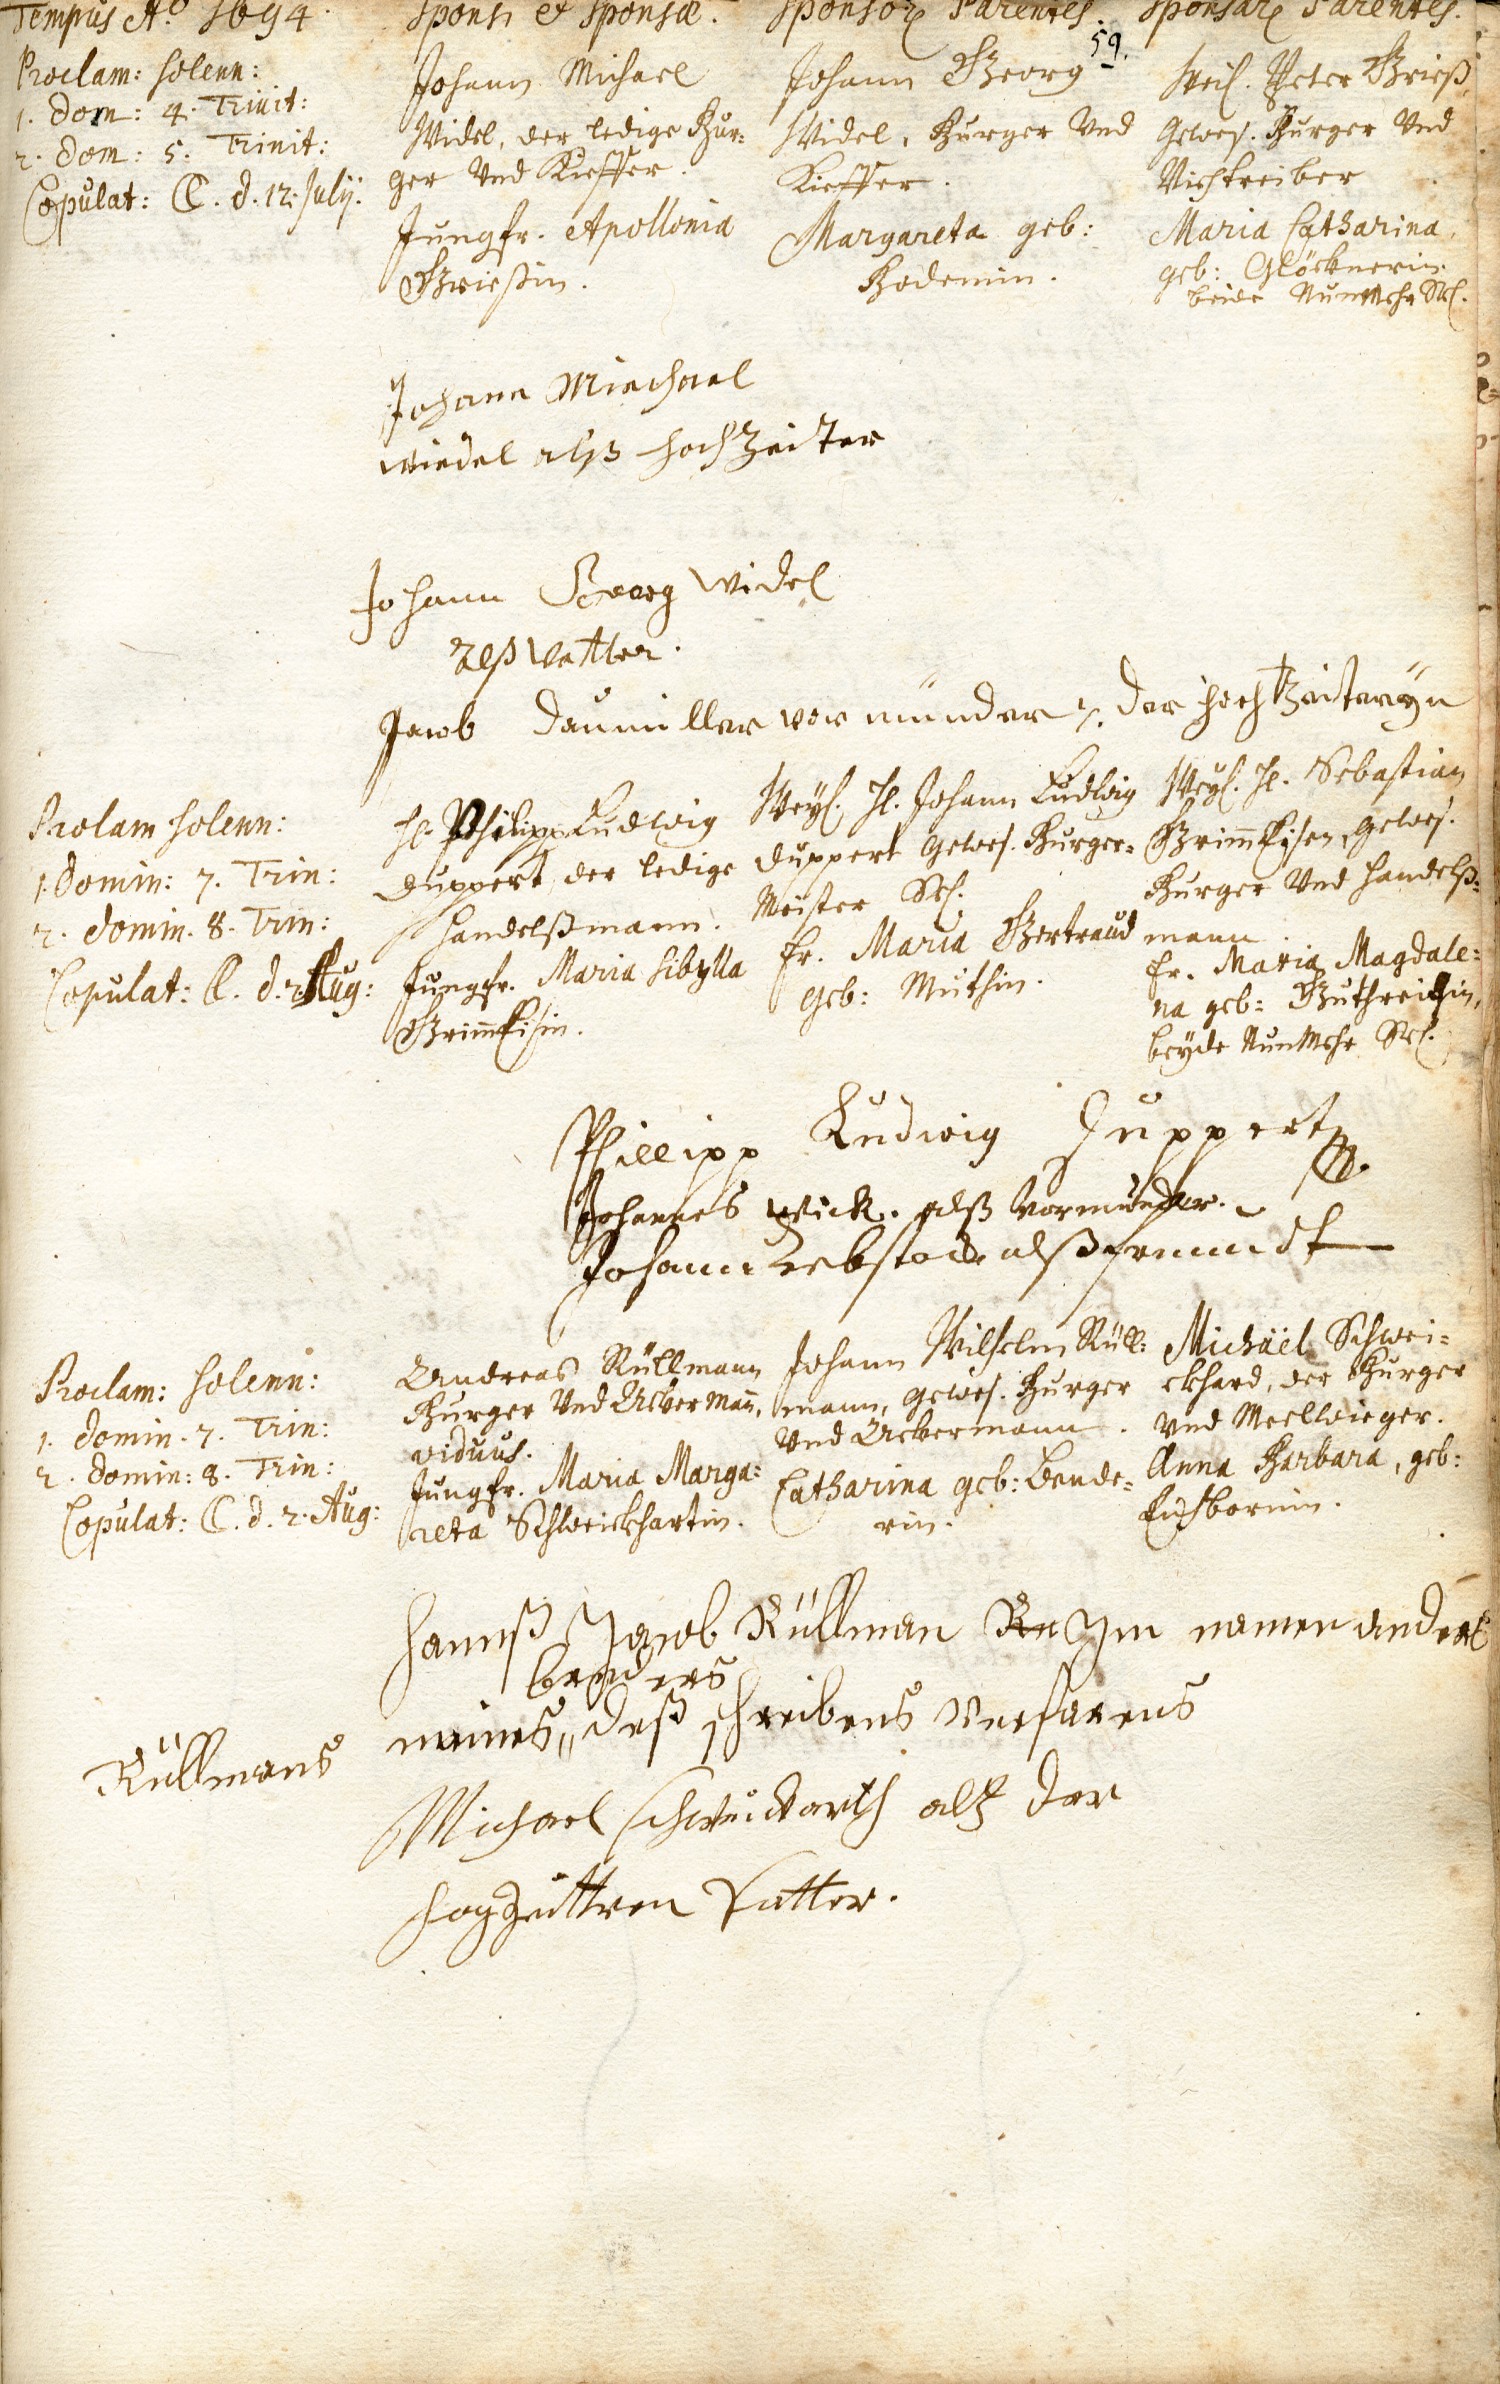 Tempus Aō 1694.
Sponsi et Sponsæ.
Sponsorū Parentes.
Sponsarū Parentes.
59.
Proclam: solenn:
1. Dom: 4. Trinit:
2. Dom: 5. Trinit:
Copulat: C. d. 12. Julij.
Johann Michael
Widel, der ledige Bur=
ger Und Kieffer.
Jungfr. Apollonia
Brießin.
Johann Georg
Widel, Burger Und
Kieffer.
Margareta geb:
Bodemin.
Weil. Peter Brieß,
Gewes. Burger Und
Viehtreiber
Maria Catharina,
geb: Glöcknerin.
beide NunMehr Sel.
Johann Miechael
wiedel alß hochZeiter
Johann Georg Widel
alß Vatter.
Jacob Daumiller vor münder der hochtzeiteryn
Proclam solenn:
1. Domin: 7. Trin:
2. Domin. 8. Trin:
Copulat: C. d. 2. Aug:
H. Philipp Ludwig
Duppert, der ledige
Handelßmann.
Jungfr. Maria Sibylla
Grimmeisin.
Weyl. H. Johann Ludwig
Duppert Gewes. Burger=
Meister Sel.
Fr. Maria Gertraud
geb: Muthin.
Weyl. H. Sebastian
Grimmeisen, Gewes.
Burger Und Handelß=
mann.
Fr. Maria Magdale=
na geb: Guthreichin,
beyde NunMehr Sel.
Phillipp Ludwig Duppert
Johannes Wick. alß Vormünder.
Johann Rebstock alß freundt
Proclam: solenn:
1. Domin. 7. Trin:
2. Domin: 8. Trin:
Copulat: C. d. 2. Aug:
Andreas Rüllmann
Burger Und Ackermann,
viduus.
Jungfr. Maria Marga=
reta Schweickhartin.
Johann Wilhelm Rüll=
mann, Gewes. Burger
Und Ackermann.
Catharina geb: Bende=
rin.
Michaël Schwei=
ckhard, der Burger
und Meelwieger.
Anna Barbara, geb:
Eichbornin.
Hannß Jacob Rüllman Im namen andreas
bruders
meines,, deß schreibens Unerfarens
Rüllmans
Michael Schweickarth alß der
hogzeittren Vatter.